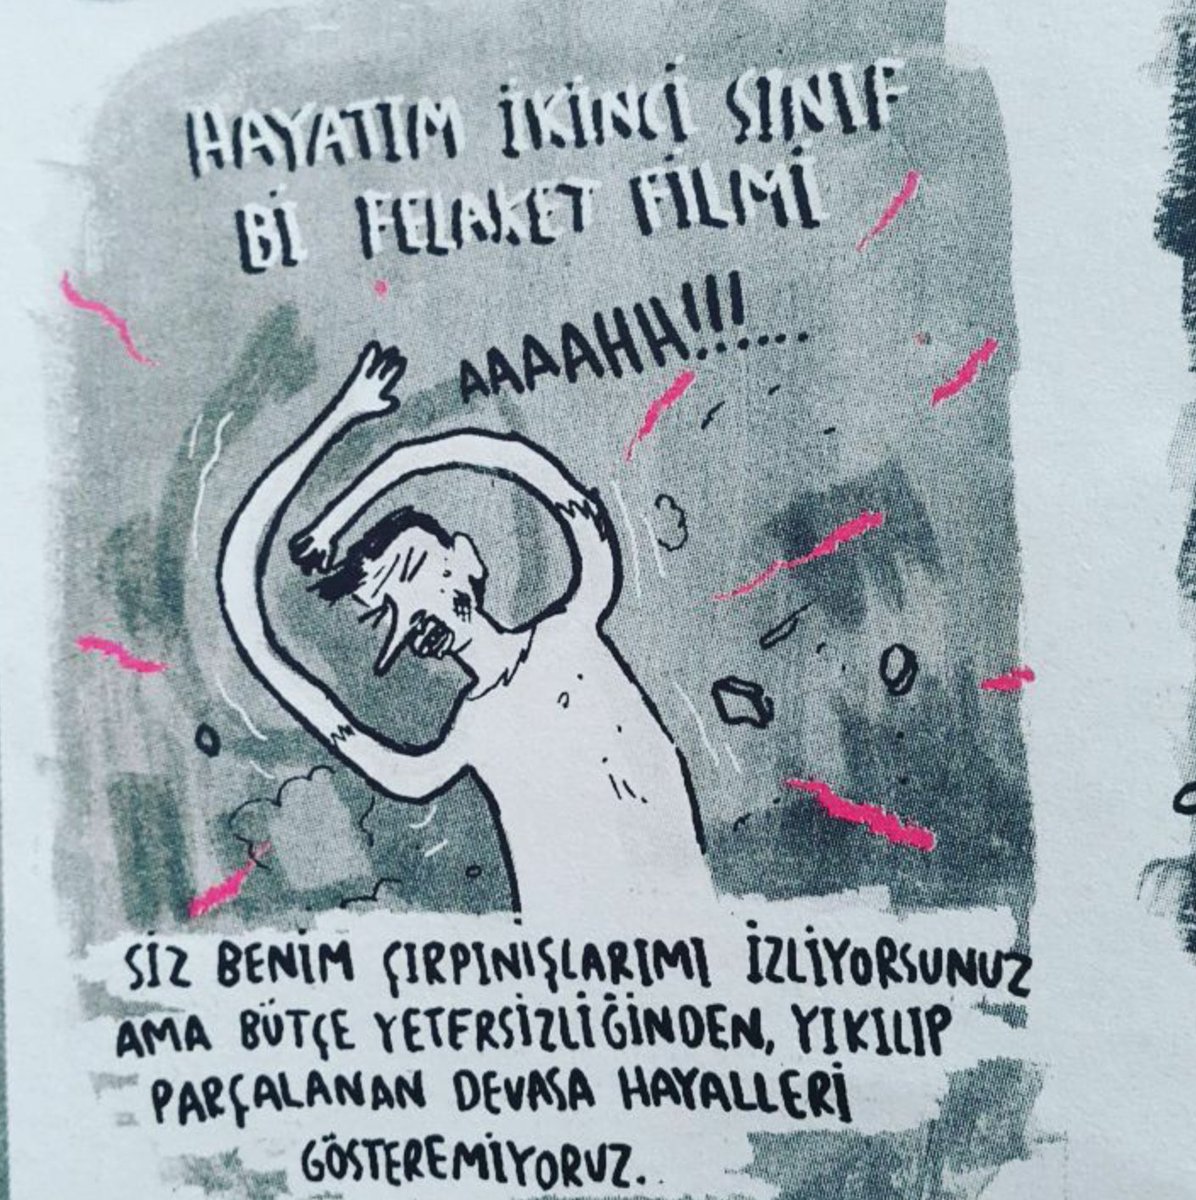 HAYATIM İKİNCİ SINIF
Bİ FELAKET FİLMİ
AAAAHH!!!......
SİZ BENİM ÇIRPINIŞLARIMI İZLİYORSUNUZ
AMA BÜTÇE YETERSİZLİĞİNDEN, YIKILIP
PARÇALANAN DEVASA HAYALLERİ
GÖSTEREMİYORUZ.